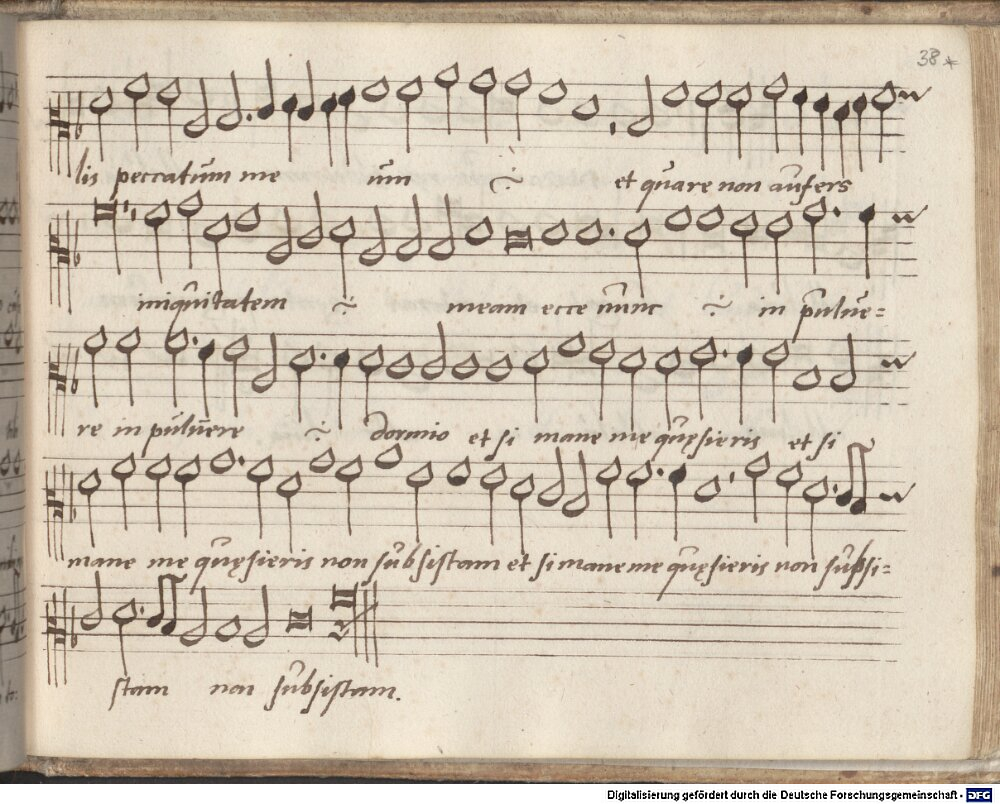 38*
lis peccatum me um ·/· et quare non aufers
iniquitatem ·/· meam ecce nunc ·/· in pulue=
re in puluere ·/· dormio et si mane me quęsieris et si
mane me quęsieris non subsistam et si mane me quęsieris non subsi=
stam non subsistam.
Digitalisierung gefördert durch die Deutsche Forschungsgemeinschaft - DFG